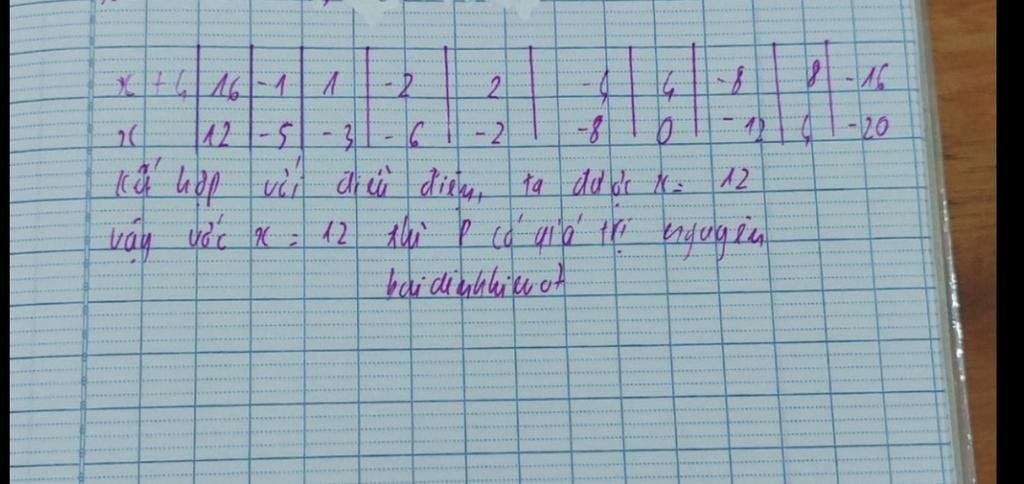 x + 4 | 16 | -1 | 1 | -2 | 2 | -4 | 4 | -8 | 8 | -16
x | 12 | -5 | -3 | -6 | -2 | -8 | 0 | -12 | 4 | -20
Kết hợp với điều điều, ta được x = 12
vậy vớc x = 12 thì P có giá trị nguyên